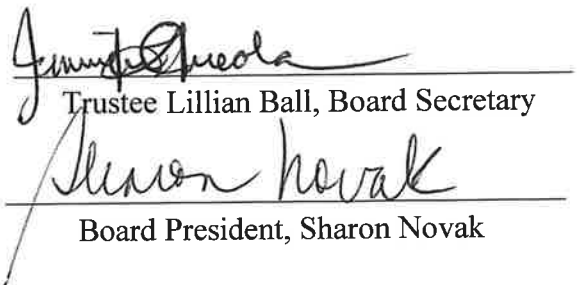 Trustee Lillian Ball, Board Secretary
Sharon Novak
Board President, Sharon Novak